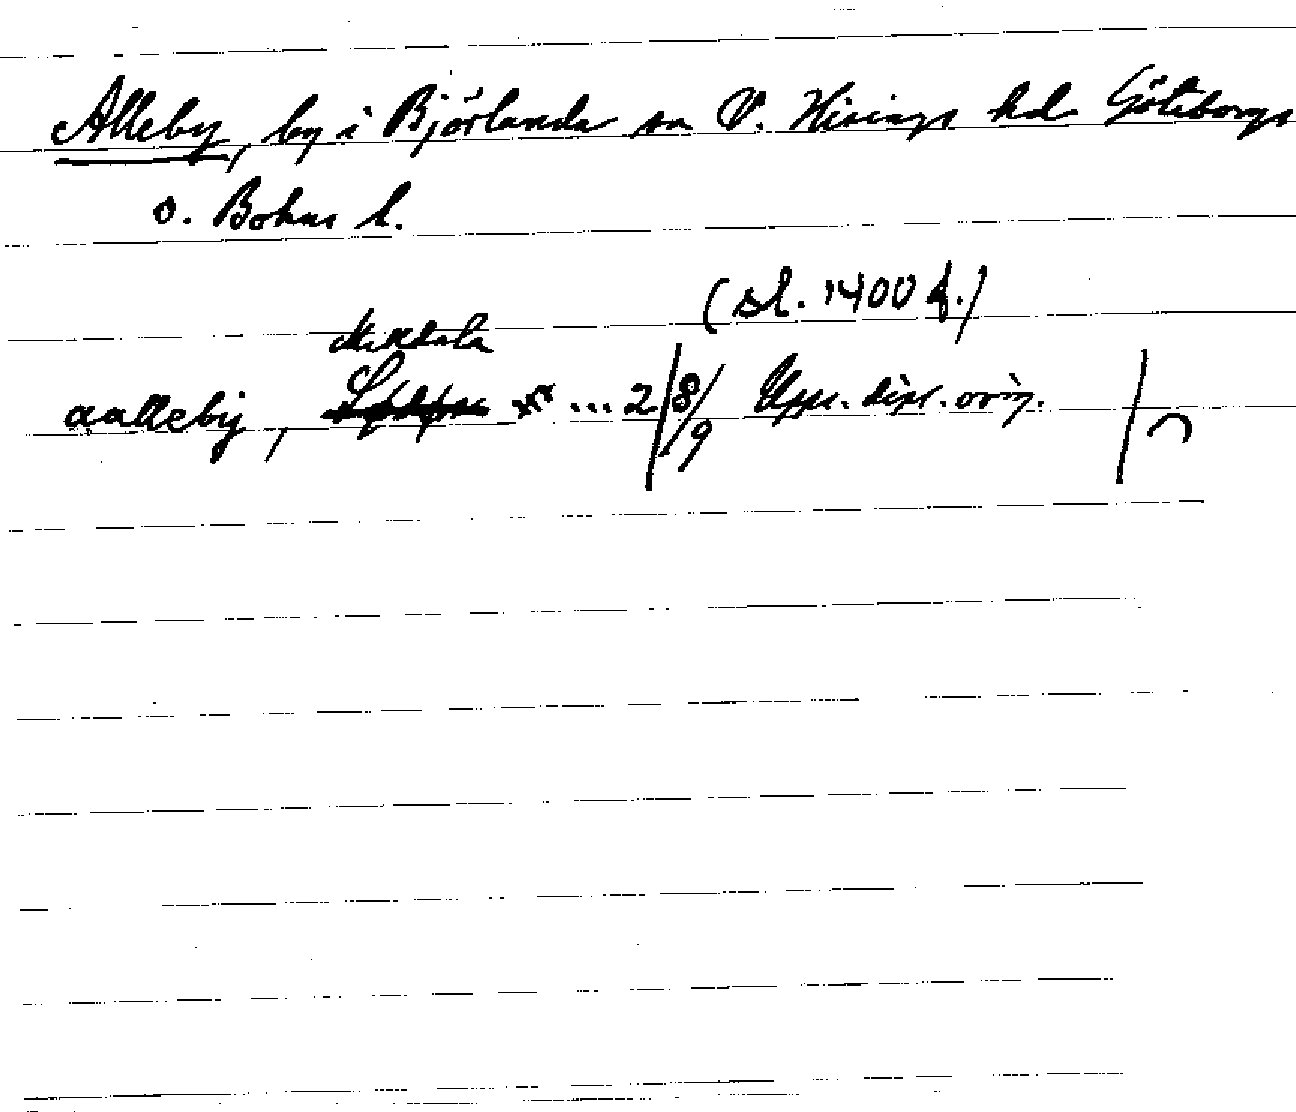 Alleby, by i Björlanda sn V. Hisings hd Göteborgs
o. Bohus l.
(sl. 1400 t.)
aalleby, ... 2 8/9 Upps. dipl. orig.